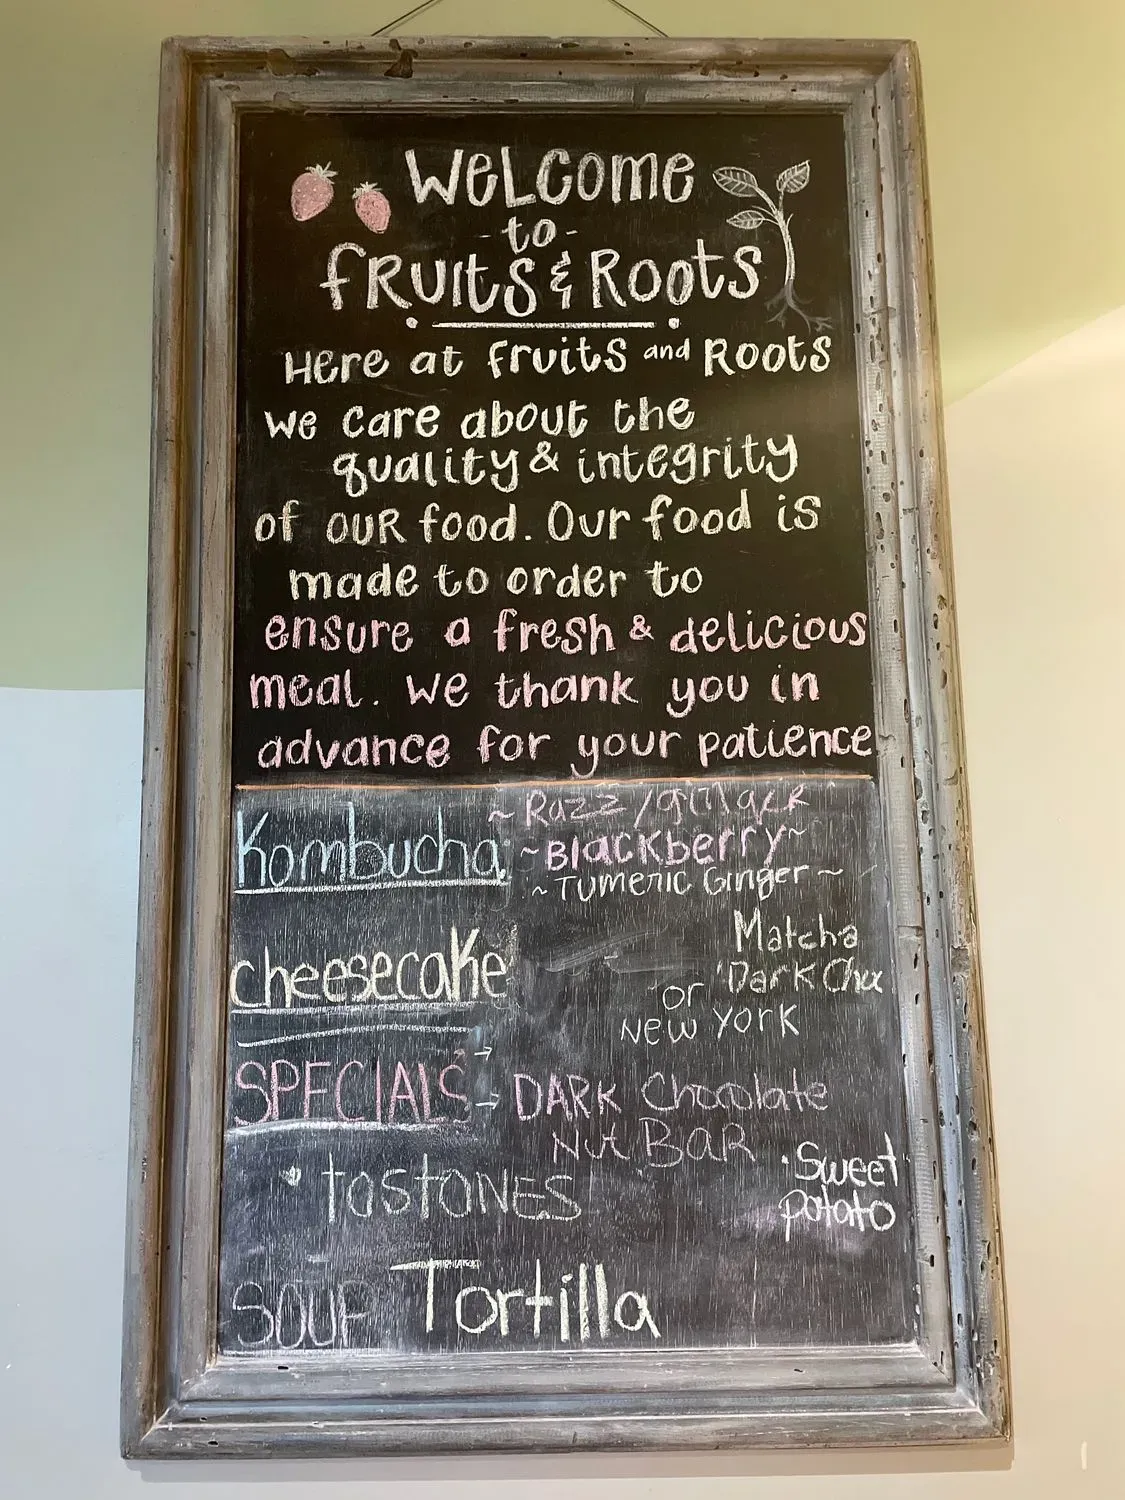 WeLcome
-to-
fRuits & Roots
Here at fruits and Roots
we care about the
quality & integrity
of ouR food. Our food is
made to order to
ensure a fresh & delicious
meal. we thank you in
advance for your patience
Kombucha
~ Razz/ginger
~Blackberry~
~ Tumeric Ginger ~
cheesecake
Matcha
Dark Choc
or
New York
SPECIALS
→
→ DARK Chocolate
Nut BAR
• tostoNES
• Sweet
potato
SOUP Tortilla